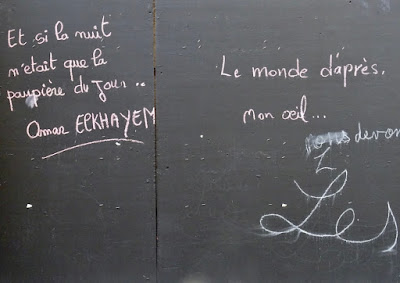 Et si la nuit
n'était que la
paupière du Jour...
Omar ELKHAYEM
Le monde d'après.
mon œil...
devon
Les